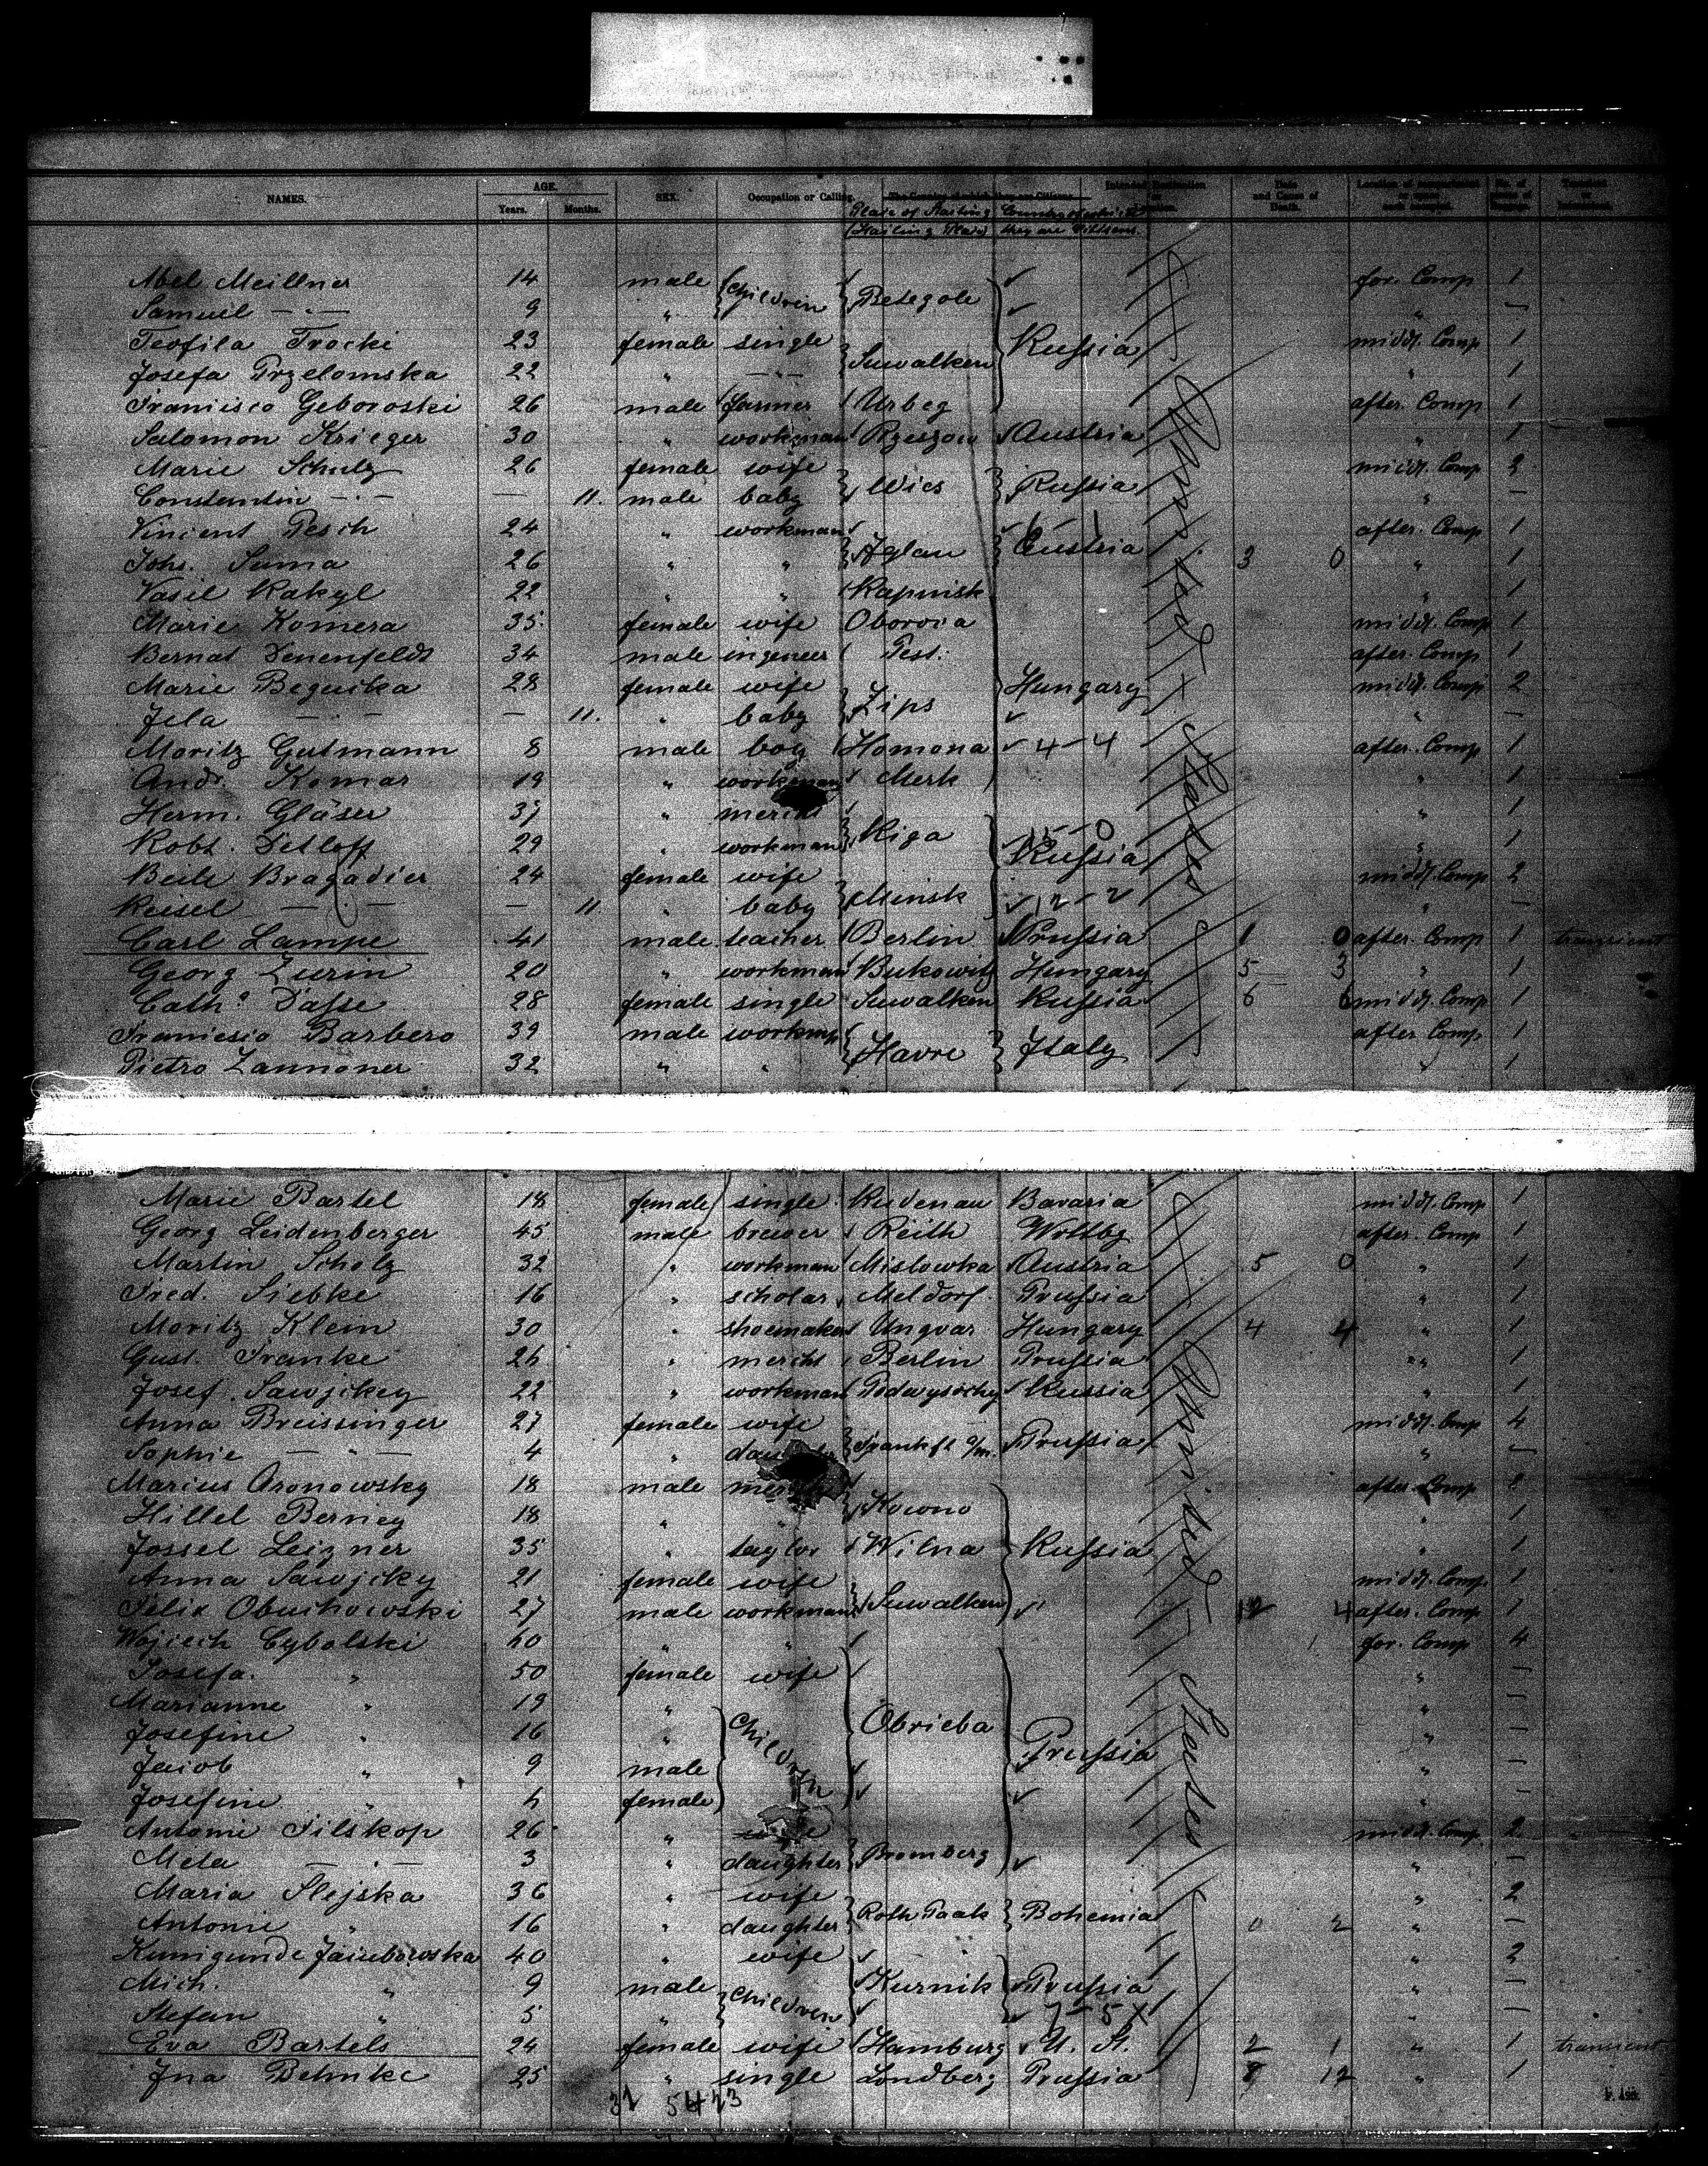 NAMES. AGE. SEX. Occupation or Calling. The Country of which they are Citizens. Intended Destination or Location. Date and Cause of Death. Location of compartment or space each occupied. No. of
Years. Months. Transient or
Place of Starting Country of which
(Starting Place) they are Citizens.
Abel Meillner 14 male children Betegole for. Comp 1
Samuel — " — 9 " " —
Teofila Trocki 23 female single Suwalken Russia middl. Comp 1
Josefa Przelomska 22 " — " — " 1
Francisco Geboroski 26 male farmer Urbeg after. Comp 1
Salomon Krieger 30 " workman Rzeszow Austria " 1
Marie Schulz 26 female wife Wics Russia middl. Comp 2
Constantin — " — — 11. male baby " —
Vincent Pesch 24 " workman Iglau Austria after. Comp 1
Johs. Suma 26 " " 3 0 " 1
Vasil Kakyl 22 " " Kapnisk " 1
Marie Komera 35 female wife Oborova middl. Comp 1
Bernat Denenfeldt 34 male ingeneer Pest. after. Comp 1
Marie Beguska 28 female wife Zips Hungary middl. Comp 2
Jela — " — — 11. " baby " —
Moritz Gutmann 8 male boy Homona 4 - 4 after. Comp 1
Andr. Komar 19 " workman Merk " 1
Herm. Gläser 37 " mercht Riga 15 - 0 " 1
Robt. Detloff 29 " workman Russia " 1
Beile Bragadier 24 female wife Minsk middl. Comp 2
Reisel — " — — 11. " baby 12 - 2 " —
Carl Lampe 41 male teacher Berlin Prussia 1 0 after. Comp 1 transient
Georg Zurin 20 " workman Bukowitz Hungary 5 3 " 1
Catha Dasse 28 female single Suwalken Russia 6 6 middl. Comp 1
Francesco Barbero 39 male workmn Havre Italy after Comp 1
Pietro Zannoner 32 " " " 1
United States
Marie Bartel 18 female single Rudenau Bavaria middl. Comp 1
Georg Leidenberger 45 male brewer Reith Wrttbg after. Comp 1
Martin Scholz 32 " workman Mislowka Austria 5 0 " 1
Fred. Siebke 16 " scholar Meldorf Prussia " 1
Moritz Klein 30 " shoemaker Ungvar Hungary 4 4 " 1
Gust. Franke 26 " mercht Berlin Prussia " 1
Josef Sawjckey 22 " workman Podwysocky Russia " 1
Anna Breissinger 27 female wife Frankft a/m. Prussia middl. Comp 4
Sophie — " — 4 " " —
Marius Aronowsky 18 male Kowno after. Comp 1
Hillel Berney 18 " " " 1
Jossel Leizner 35 " taylor Wilna Russia " 1
Anna Sawjcky 21 female wife Suwalken middl. Comp 1
Felix Obuchowski 27 male workman 12 4 after. Comp 1
Wojciech Cybolski 60 " " for. Comp 4
Josefa " 50 female wife " —
Marianne " 19 " children Obrieba Prussia " —
Josefine " 16 " " —
Jacob " 9 male " —
Josefine " 4 female " —
Antonie Filskop 26 " Bromberg middl. Comp 2
Meta — " — 3 " daughter " —
Maria Slejska 36 " wife Roth Paak Bohemia " 2
Antonie " 16 " daughter 0 2 " —
Kunigunde Jacubowska 40 " wife Kurnik Prussia " 2
Mich. " 9 male children " —
Stefan " 5 " 7 - 5 " —
Eva Bartels 24 female wife Hamburg U. St. 2 1 " 1 transient
Ina Behnke 25 " single Londberg Prussia 8 12 " 1
United States
32 5423